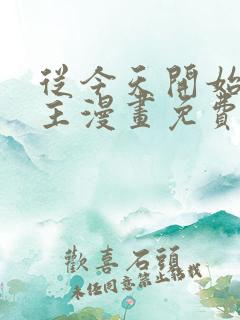 從今天開始
王漫畫免費
歡喜石頭
未经同意禁止转载